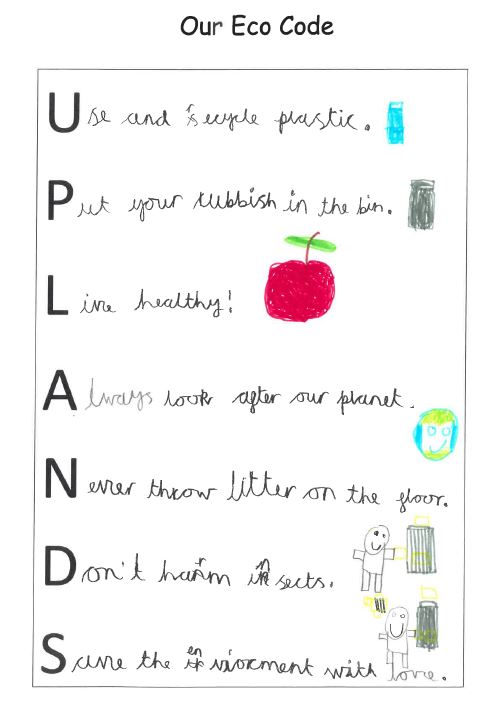 Our Eco Code
Use and recycle plastic.
Put your rubbish in the bin.
Live healthy!
Always look after our planet.
Never throw litter on the floor.
Don't harm insects.
Save the enviorment with love.